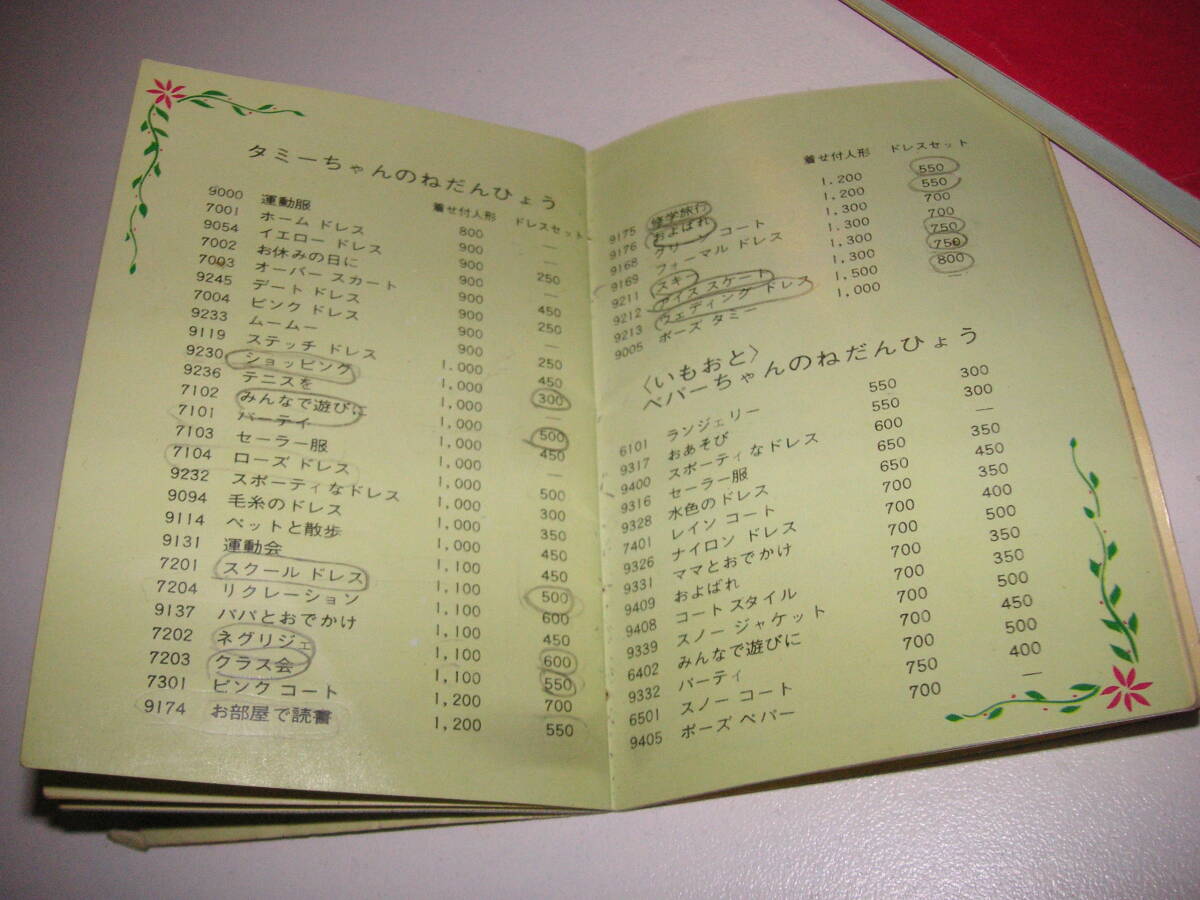 タミーちゃんのねだんひょう
着せ付人形 ドレスセット
9000 運動服 800 —
7001 ホーム ドレス 900 —
9054 イエロー ドレス 900 250
7002 お休みの日に 900 —
7003 オーバー スカート 900 450
9245 デート ドレス 900 250
7004 ピンク ドレス 900 —
9233 ムームー 900 250
9119 ステッチ ドレス 1.000 450
9230 ショッピング 1,000 300
9236 テニスを 1,000 —
7102 みんなで遊びに 1,000 500
7101 パーティ 1,000 450
7103 セーラー服 1,000 —
7104 ローズ ドレス 1,000 500
9232 スポーティなドレス 1,000 300
9094 毛糸のドレス 1,000 350
9114 ペットと散歩 1,000 450
9131 運動会 1,100 450
7201 スクール ドレス 1,100 500
7204 リクレーション 1,100 600
9137 パパとおでかけ 1,100 450
7202 ネグリジェ 1,100 600
7203 クラス会 1,100 550
7301 ピンク コート 1,200 700
9174 お部屋で読書 1,200 550
着せ付人形 ドレスセット
9175 修学旅行 1.200 550
9176 およばれ 1.200 550
9168 グリーン コート 1.300 700
9169 フォーマル ドレス 1.300 700
9211 スキー 1,300 750
9212 アイス スケート 1,300 750
9213 ウェディング ドレス 1,500 800
9005 ポーズ タミー 1,000 —
〈いもおと〉
ペパーちゃんのねだんひょう
6101 ランジェリー 550 300
9317 おあそび 550 300
9400 スポーティなドレス 600 —
9316 セーラー服 650 350
9328 水色のドレス 650 450
7401 レイン コート 700 350
9326 ナイロン ドレス 700 400
9331 ママとおでかけ 700 500
9409 およばれ 700 350
9408 コート スタイル 700 350
9339 スノー ジャケット 700 500
6402 みんなで遊びに 700 450
9332 パーティ 700 500
6501 スノー コート 750 400
9405 ポーズ ペパー 700 —